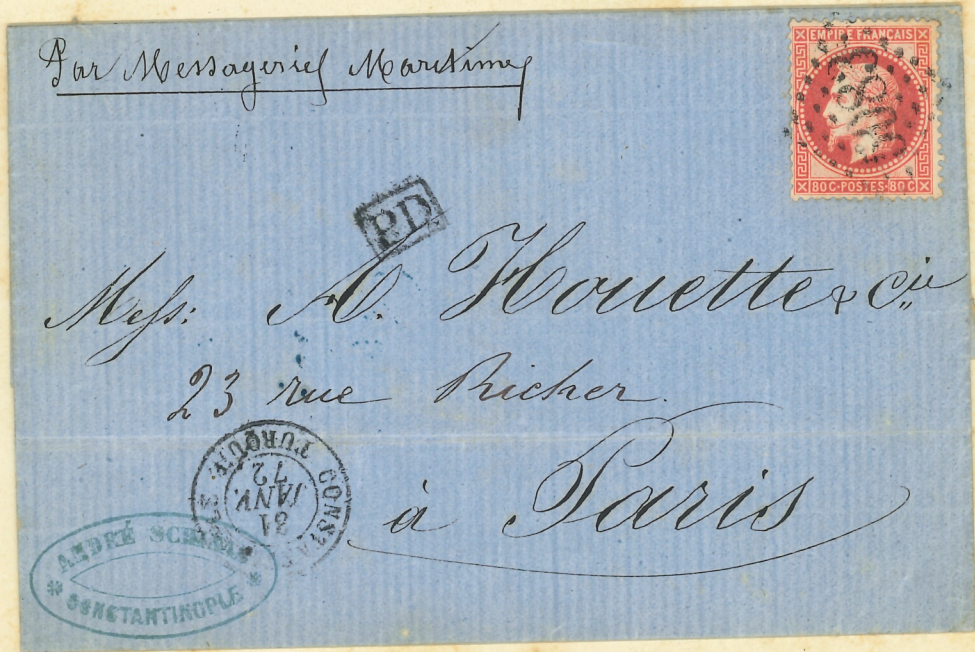 Par Messageries Maritimes
EMPIRE FRANÇAIS
80C·POSTES·80C
P.D
Mess: A. Houette & Cie
23 rue Richer
à Paris
TURQUIE
31
JANV.
72
ANDRÉ
* CONSTANTINOPLE *